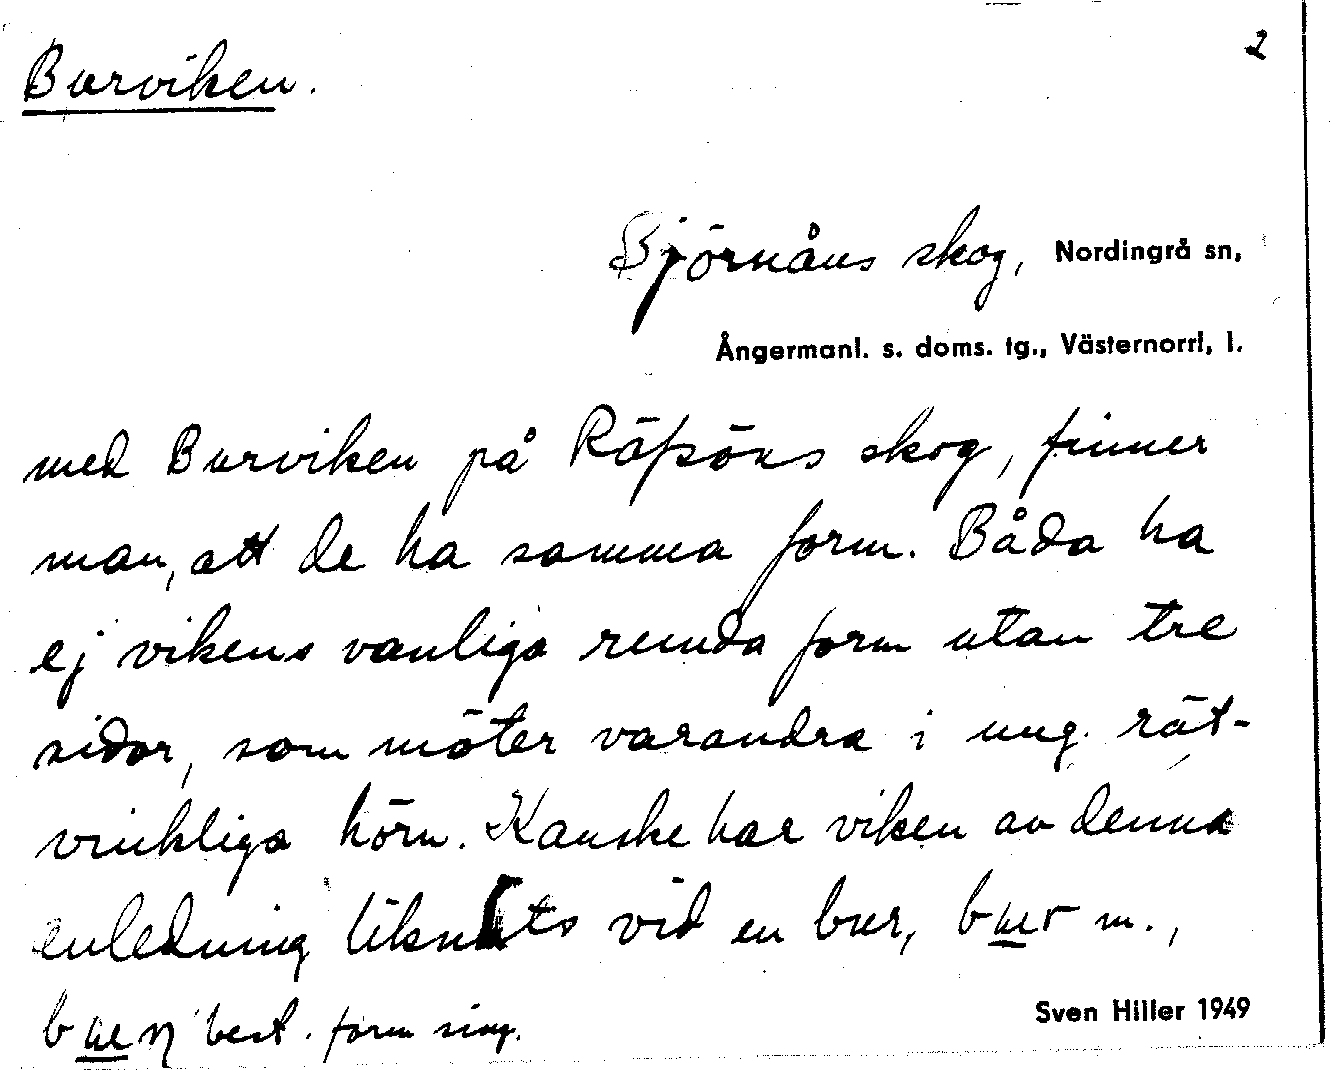 Burviken.
2
Björnåns skog, Nordingrå sn,
Ångermanl. s. doms. tg., Västernorrl. l.
med Burviken på Räpsöns skog, finner
man, att de ha samma form. Båda ha
ej vikens vanliga runda form utan tre
sidor, som möter varandra i ung. rät-
vinkliga hörn. Kanske har viken av denna
anledning liknats vid en bur,
best. form sing.
Sven Hiller 1949